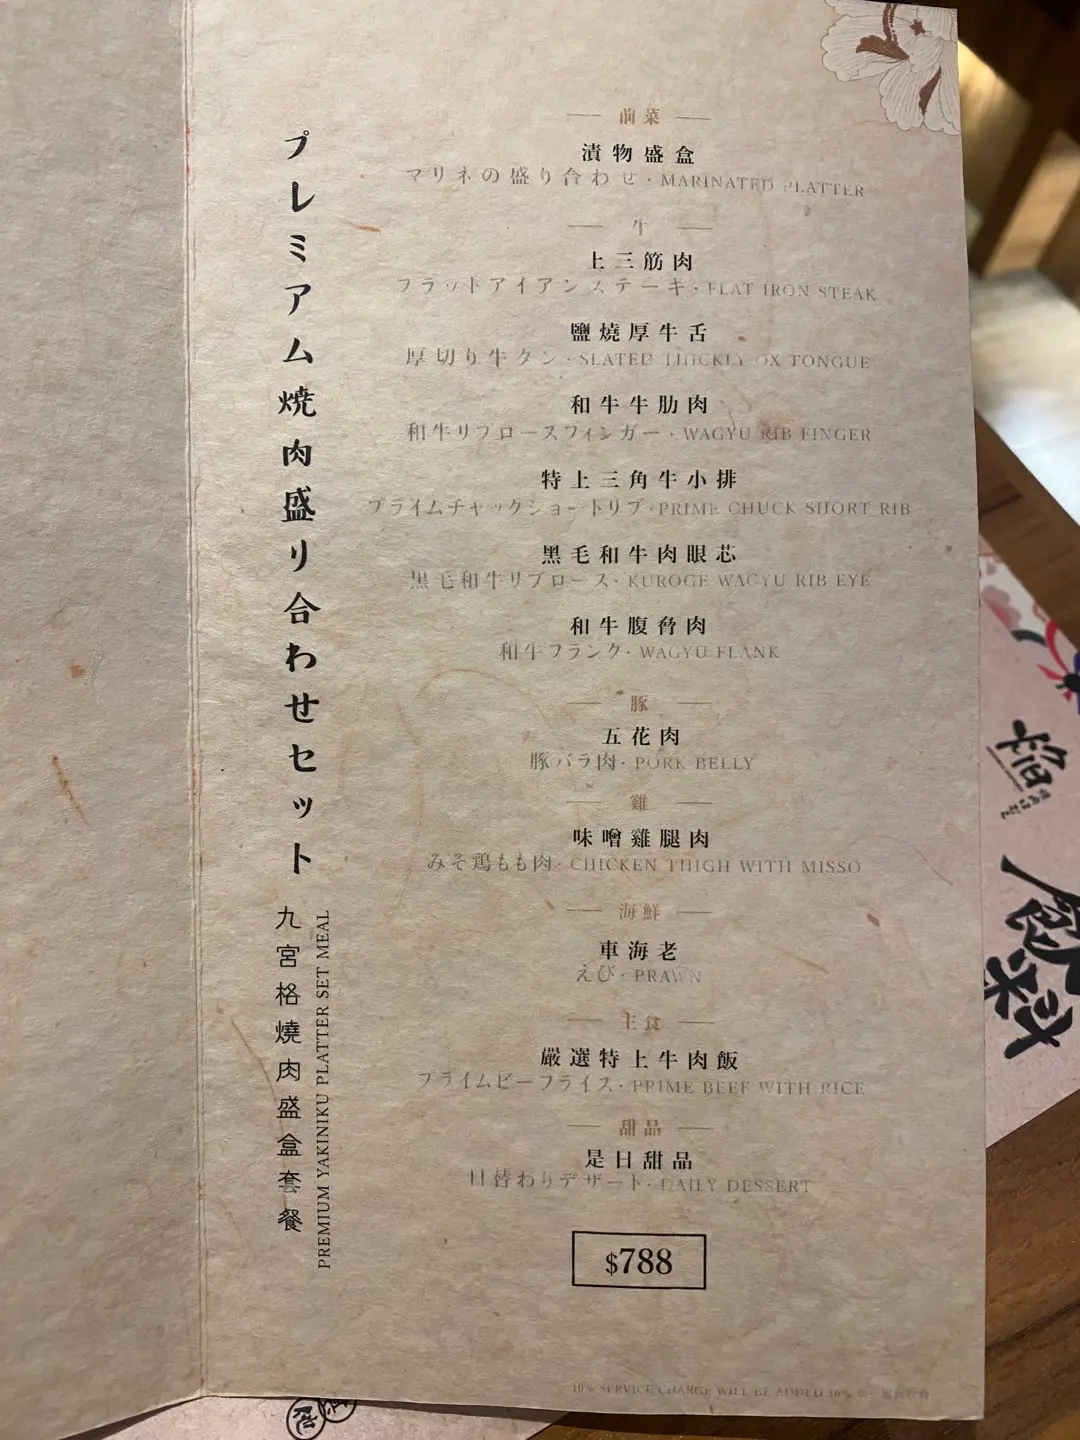 プレミアム焼肉盛り合わせセット
九宮格燒肉盛盒套餐
PREMIUM YAKINIKU PLATTER SET MEAL
前菜
漬物盛盒
マリネの盛り合わせ · MARINATED PLATTER
牛
上三筋肉
フラットアイアンステーキ · FLAT IRON STEAK
鹽燒厚牛舌
厚切り牛タン · SLATED THICKLY OX TONGUE
和牛牛肋肉
和牛リブロースフィンガー · WAGYU RIB FINGER
特上三角牛小排
プライムチャックショートリブ · PRIME CHUCK SHORT RIB
黑毛和牛肉眼芯
黒毛和牛リブロース · KUROGE WAGYU RIB EYE
和牛腹脅肉
和牛フランク · WAGYU FLANK
豚
五花肉
豚バラ肉 · PORK BELLY
雞
味噌雞腿肉
みそ鶏もも肉 · CHICKEN THIGH WITH MISSO
海鮮
車海老
えび · PRAWN
主食
嚴選特上牛肉飯
プライムビーフライス · PRIME BEEF WITH RICE
甜品
是日甜品
日替わりデザート · DAILY DESSERT
$788
10% SERVICE CHARGE WILL BE ADDED
飲料